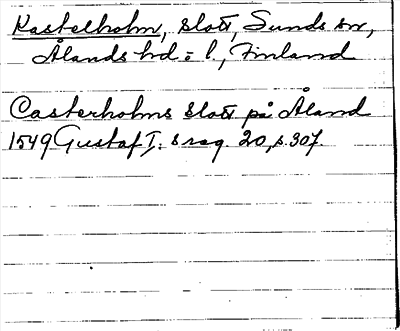 Kastelholm, slott, Sunds sn,
Ålands hd o. l., Finland
Casterholms slott på Åland
1549 Gustaf I:s reg. 20, s. 307.